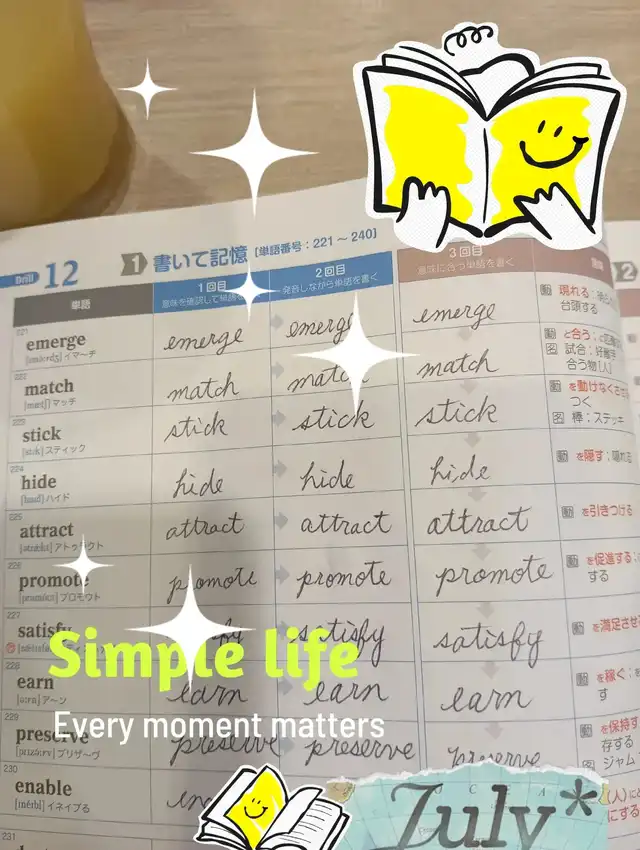 Drill 12 1 書いて記憶 [単語番号:221~240] 2
単語 1回目 2回目 3回目
意味を確認して単語 発音しながら単語を書く 意味に合う単語を書く
221 emerge イマ~ヂ emerge emerge emerge 動 現れる:
台頭する
222 match マッチ match match match 動 と合う:
名 試合:
合う物[人]
223 stick スティック stick stick stick 動 を動けなくさせ
つく
名 棒:ステッキ
224 hide ハイド hide hide hide 動 を隠す:
225 attract アトゥラクト attract attract attract 動 を引きつける
226 promote プロモウト promote promote promote 動 を促進する:
する
227 satisfy satisfy satisfy 動 を満足させ
Simple life
228 earn ア~ン earn earn earn 動 を稼ぐ:
す
Every moment matters
229 preserve プリザ~ヴ preserve preserve preserve 動 を保持す
存する
名 ジャム
230 enable イネイブる
(人)に
にする
July*
231